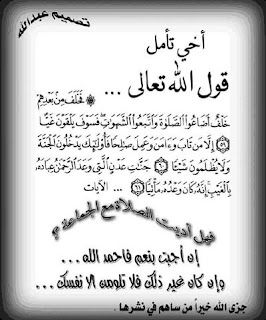 تصميم عبدالله
أخي تأمل
قول الله تعالى ...
۞ فَخَلَفَ مِنۢ بَعۡدِهِمۡ
خَلۡفٌ أَضَاعُواْ ٱلصَّلَوٰةَ وَٱتَّبَعُواْ ٱلشَّهَوَٰتِۖ فَسَوۡفَ يَلۡقَوۡنَ غَيًّا
٥٩ إِلَّا مَن تَابَ وَءَامَنَ وَعَمِلَ صَٰلِحٗا فَأُوْلَٰٓئِكَ يَدۡخُلُونَ ٱلۡجَنَّةَ
وَلَا يُظۡلَمُونَ شَيۡـٔٗا ٦٠ جَنَّٰتِ عَدۡنٍ ٱلَّتِي وَعَدَ ٱلرَّحۡمَٰنُ عِبَادَهُۥ
بِٱلۡغَيۡبِۚ إِنَّهُۥ كَانَ وَعۡدُهُۥ مَأۡتِيّٗا ٦١ ... الآيات
فهل أديت الصلاة مع الجماعة ؟
إن أجبت بنعم فاحمد الله ...
وإن كان غير ذلك فلا تلومن الا نفسك ...
جزى الله خيراً من ساهم في نشرها